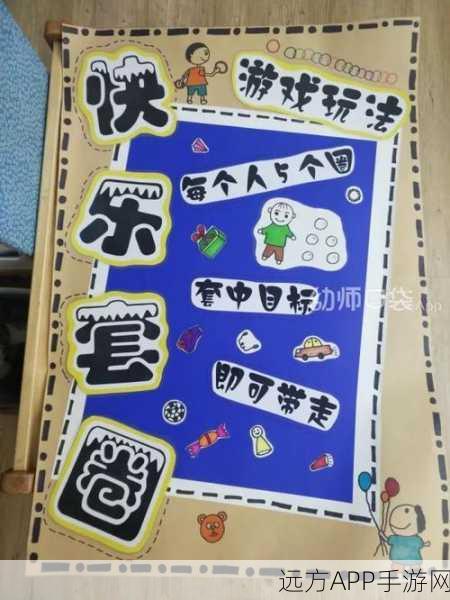 快乐套圈
游戏玩法
每个人5个圈
套中目标
即可带走
幼师口袋App
远方APP手游网